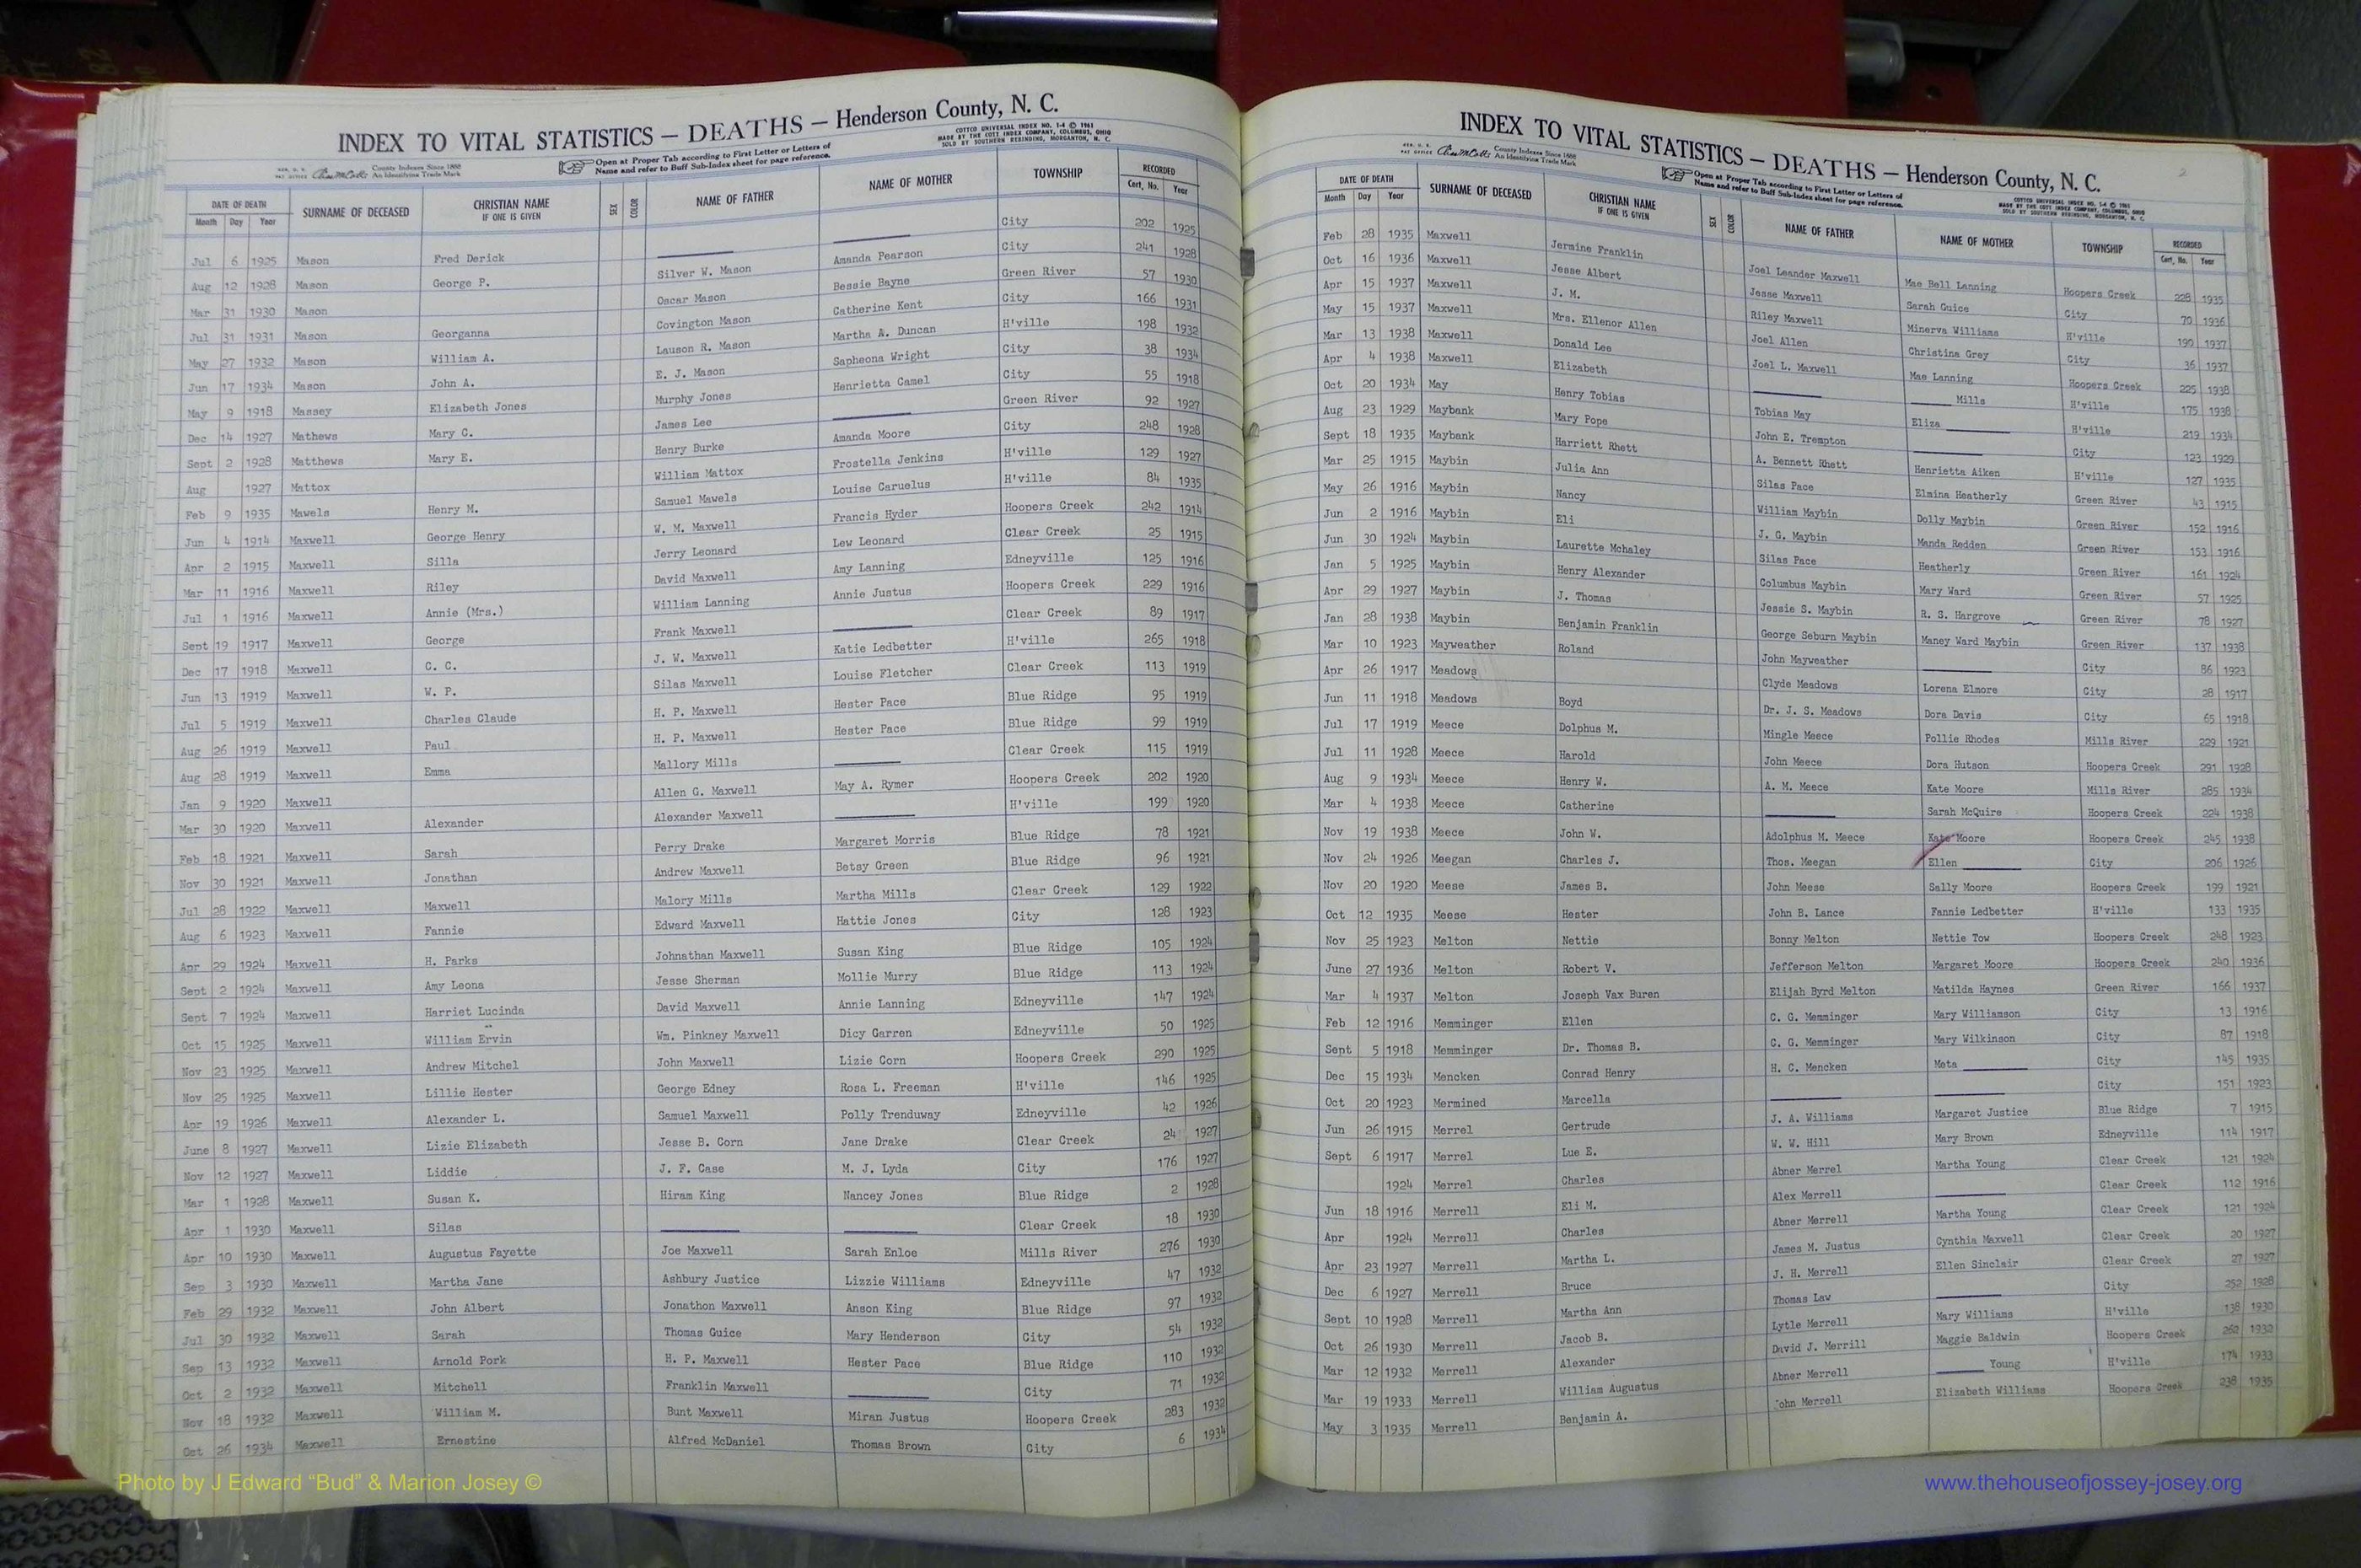 INDEX TO VITAL STATISTICS — DEATHS — Henderson County, N. C.
COTTCO UNIVERSAL INDEX NO. 1-4 © 1961
MADE BY THE COTT INDEX COMPANY, COLUMBUS, OHIO
SOLD BY SOUTHERN REBINDING, MORGANTON, N. C.
County Indexes Since 1888
An Identifying Trade Mark
Open at Proper Tab according to First Letter or Letters of
Name and refer to Buff Sub-Index sheet for page reference.
DATE OF DEATH SURNAME OF DECEASED CHRISTIAN NAME IF ONE IS GIVEN SEX COLOR NAME OF FATHER NAME OF MOTHER TOWNSHIP RECORDED
Month Day Year Cert. No. Year
Jul 6 1925 Mason Fred Derick City 202 1925
Aug 12 1928 Mason George P. Silver W. Mason Amanda Pearson City 241 1928
Mar 31 1930 Mason Oscar Mason Bessie Bayne Green River 57 1930
Jul 31 1931 Mason Georganna Covington Mason Catherine Kent City 166 1931
May 27 1932 Mason William A. Lauson R. Mason Martha A. Duncan H'ville 198 1932
Jun 17 1934 Mason John A. E. J. Mason Sapheona Wright City 38 1934
May 9 1918 Massey Elizabeth Jones Murphy Jones Henrietta Camel City 55 1918
Dec 14 1927 Mathews Mary C. James Lee Green River 92 1927
Sept 2 1928 Matthews Mary E. Henry Burke Amanda Moore City 248 1928
Aug 1927 Mattox William Mattox Frostella Jenkins H'ville 129 1927
Feb 9 1935 Mawels Henry M. Samuel Mawels Louise Caruelus H'ville 84 1935
Jun 4 1914 Maxwell George Henry W. M. Maxwell Francis Hyder Hoopers Creek 242 1914
Apr 2 1915 Maxwell Silla Jerry Leonard Lew Leonard Clear Creek 25 1915
Mar 11 1916 Maxwell Riley David Maxwell Amy Lanning Edneyville 125 1916
Jul 1 1916 Maxwell Annie (Mrs.) William Lanning Annie Justus Hoopers Creek 229 1916
Sept 19 1917 Maxwell George Frank Maxwell Clear Creek 89 1917
Dec 17 1918 Maxwell C. C. J. W. Maxwell Katie Ledbetter H'ville 265 1918
Jun 13 1919 Maxwell W. P. Silas Maxwell Louise Fletcher Clear Creek 113 1919
Jul 5 1919 Maxwell Charles Claude H. P. Maxwell Hester Pace Blue Ridge 95 1919
Aug 26 1919 Maxwell Paul H. P. Maxwell Hester Pace Blue Ridge 99 1919
Aug 28 1919 Maxwell Emma Mallory Mills Clear Creek 115 1919
Jan 9 1920 Maxwell Allen G. Maxwell May A. Rymer Hoopers Creek 202 1920
Mar 30 1920 Maxwell Alexander Alexander Maxwell H'ville 199 1920
Feb 18 1921 Maxwell Sarah Perry Drake Margaret Morris Blue Ridge 78 1921
Nov 30 1921 Maxwell Jonathan Andrew Maxwell Betsy Green Blue Ridge 96 1921
Jul 28 1922 Maxwell Maxwell Malory Mills Martha Mills Clear Creek 129 1922
Aug 6 1923 Maxwell Fannie Edward Maxwell Hattie Jones City 128 1923
Apr 29 1924 Maxwell H. Parks Johnathan Maxwell Susan King Blue Ridge 105 1924
Sept 2 1924 Maxwell Amy Leona Jesse Sherman Mollie Murry Blue Ridge 113 1924
Sept 7 1924 Maxwell Harriet Lucinda David Maxwell Annie Lanning Edneyville 147 1924
Oct 15 1925 Maxwell William Ervin Wm. Pinkney Maxwell Dicy Garren Edneyville 50 1925
Nov 23 1925 Maxwell Andrew Mitchel John Maxwell Lizie Corn Hoopers Creek 290 1925
Nov 25 1925 Maxwell Lillie Hester George Edney Rosa L. Freeman H'ville 146 1925
Apr 19 1926 Maxwell Alexander L. Samuel Maxwell Polly Trenduway Edneyville 42 1926
June 8 1927 Maxwell Lizie Elizabeth Jesse B. Corn Jane Drake Clear Creek 24 1927
Nov 12 1927 Maxwell Liddie J. F. Case M. J. Lyda City 176 1927
Mar 1 1928 Maxwell Susan K. Hiram King Nancey Jones Blue Ridge 2 1928
Apr 1 1930 Maxwell Silas Clear Creek 18 1930
Apr 10 1930 Maxwell Augustus Fayette Joe Maxwell Sarah Enloe Mills River 276 1930
Sep 3 1930 Maxwell Martha Jane Ashbury Justice Lizzie Williams Edneyville 47 1932
Feb 29 1932 Maxwell John Albert Jonathon Maxwell Anson King Blue Ridge 97 1932
Jul 30 1932 Maxwell Sarah Thomas Guice Mary Henderson City 54 1932
Sep 13 1932 Maxwell Arnold Pork H. P. Maxwell Hester Pace Blue Ridge 110 1932
Oct 2 1932 Maxwell Mitchell Franklin Maxwell City 71 1932
Nov 18 1932 Maxwell William M. Bunt Maxwell Miran Justus Hoopers Creek 283 1932
Oct 26 1934 Maxwell Ernestine Alfred McDaniel Thomas Brown City 6 1934
INDEX TO VITAL STATISTICS — DEATHS — Henderson County, N. C.
County Indexes Since 1888
An Identifying Trade Mark
Open at Proper Tab according to First Letter or Letters of
Name and refer to Buff Sub-Index sheet for page reference.
COTTCO UNIVERSAL INDEX NO. 1-4 © 1961
MADE BY THE COTT INDEX COMPANY, COLUMBUS, OHIO
SOLD BY SOUTHERN REBINDING, MORGANTON, N. C.
2
DATE OF DEATH SURNAME OF DECEASED CHRISTIAN NAME IF ONE IS GIVEN SEX COLOR NAME OF FATHER NAME OF MOTHER TOWNSHIP RECORDED
Month Day Year Cert. No. Year
Feb 28 1935 Maxwell Jermine Franklin Joel Leander Maxwell Mae Bell Lanning Hoopers Creek 228 1935
Oct 16 1936 Maxwell Jesse Albert Jesse Maxwell Sarah Guice City 70 1936
Apr 15 1937 Maxwell J. M. Riley Maxwell Minerva Williams H'ville 190 1937
May 15 1937 Maxwell Mrs. Ellenor Allen Joel Allen Christina Grey City 36 1937
Mar 13 1938 Maxwell Donald Lee Joel L. Maxwell Mae Lanning Hoopers Creek 225 1938
Apr 4 1938 Maxwell Elizabeth Mills H'ville 175 1938
Oct 20 1934 May Henry Tobias Tobias May Eliza H'ville 219 1934
Aug 23 1929 Maybank Mary Pope John E. Trempton City 123 1929
Sept 18 1935 Maybank Harriett Rhett A. Bennett Rhett Henrietta Aiken H'ville 127 1935
Mar 25 1915 Maybin Julia Ann Silas Pace Elmina Heatherly Green River 43 1915
May 26 1916 Maybin Nancy William Maybin Dolly Maybin Green River 152 1916
Jun 2 1916 Maybin Eli J. G. Maybin Manda Redden Green River 153 1916
Jun 30 1924 Maybin Laurette Mchaley Silas Pace Heatherly Green River 161 1924
Jan 5 1925 Maybin Henry Alexander Columbus Maybin Mary Ward Green River 57 1925
Apr 29 1927 Maybin J. Thomas Jessie S. Maybin R. S. Hargrove Green River 78 1927
Jan 28 1938 Maybin Benjamin Franklin George Seburn Maybin Maney Ward Maybin Green River 137 1938
Mar 10 1923 Mayweather Roland John Mayweather City 86 1923
Apr 26 1917 Meadows Clyde Meadows Lorena Elmore City 28 1917
Jun 11 1918 Meadows Boyd Dr. J. S. Meadows Dora Davis City 65 1918
Jul 17 1919 Meece Dolphus M. Mingle Meece Pollie Rhodes Mills River 229 1921
Jul 11 1928 Meece Harold John Meece Dora Hutson Hoopers Creek 291 1928
Aug 9 1934 Meece Henry W. A. M. Meece Kate Moore Mills River 285 1934
Mar 4 1938 Meece Catherine Sarah McQuire Hoopers Creek 224 1938
Nov 19 1938 Meece John W. Adolphus M. Meece Kate Moore Hoopers Creek 245 1938
Nov 24 1926 Meegan Charles J. Thos. Meegan Ellen City 206 1926
Nov 20 1920 Meese James B. John Meese Sally Moore Hoopers Creek 199 1921
Oct 12 1935 Meese Hester John B. Lance Fannie Ledbetter H'ville 133 1935
Nov 25 1923 Melton Nettie Bonny Melton Nettie Tow Hoopers Creek 248 1923
June 27 1936 Melton Robert V. Jefferson Melton Margaret Moore Hoopers Creek 240 1936
Mar 4 1937 Melton Joseph Vax Buren Elijah Byrd Melton Matilda Haynes Green River 166 1937
Feb 12 1916 Memminger Ellen C. G. Memminger Mary Williamson City 13 1916
Sept 5 1918 Memminger Dr. Thomas B. C. G. Memminger Mary Wilkinson City 87 1918
Dec 15 1934 Mencken Conrad Henry H. C. Mencken Meta City 145 1935
Oct 20 1923 Mermined Marcella City 151 1923
Jun 26 1915 Merrel Gertrude J. A. Williams Margaret Justice Blue Ridge 7 1915
Sept 6 1917 Merrel Lue E. W. W. Hill Mary Brown Edneyville 114 1917
1924 Merrel Charles Abner Merrel Martha Young Clear Creek 121 1924
Jun 18 1916 Merrell Eli M. Alex Merrell Clear Creek 112 1916
Apr 1924 Merrell Charles Abner Merrell Martha Young Clear Creek 121 1924
Apr 23 1927 Merrell Martha L. James M. Justus Cynthia Maxwell Clear Creek 20 1927
Dec 6 1927 Merrell Bruce J. H. Merrell Ellen Sinclair Clear Creek 27 1927
Sept 10 1928 Merrell Martha Ann Thomas Law City 252 1928
Oct 26 1930 Merrell Jacob B. Lytle Merrell Mary Williams H'ville 138 1930
Mar 12 1932 Merrell Alexander David J. Merrill Maggie Baldwin Hoopers Creek 262 1932
Mar 19 1933 Merrell William Augustus Abner Merrell Young H'ville 174 1933
May 3 1935 Merrell Benjamin A. John Merrell Elizabeth Williams Hoopers Creek 238 1935
Photo by J Edward “Bud” & Marion Josey ©
www.thehouseofjossey-josey.org